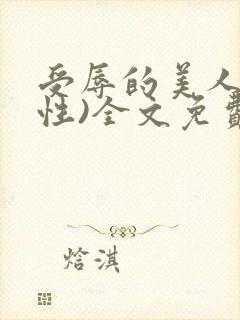 受辱的美人
性)全文免費
焓淇